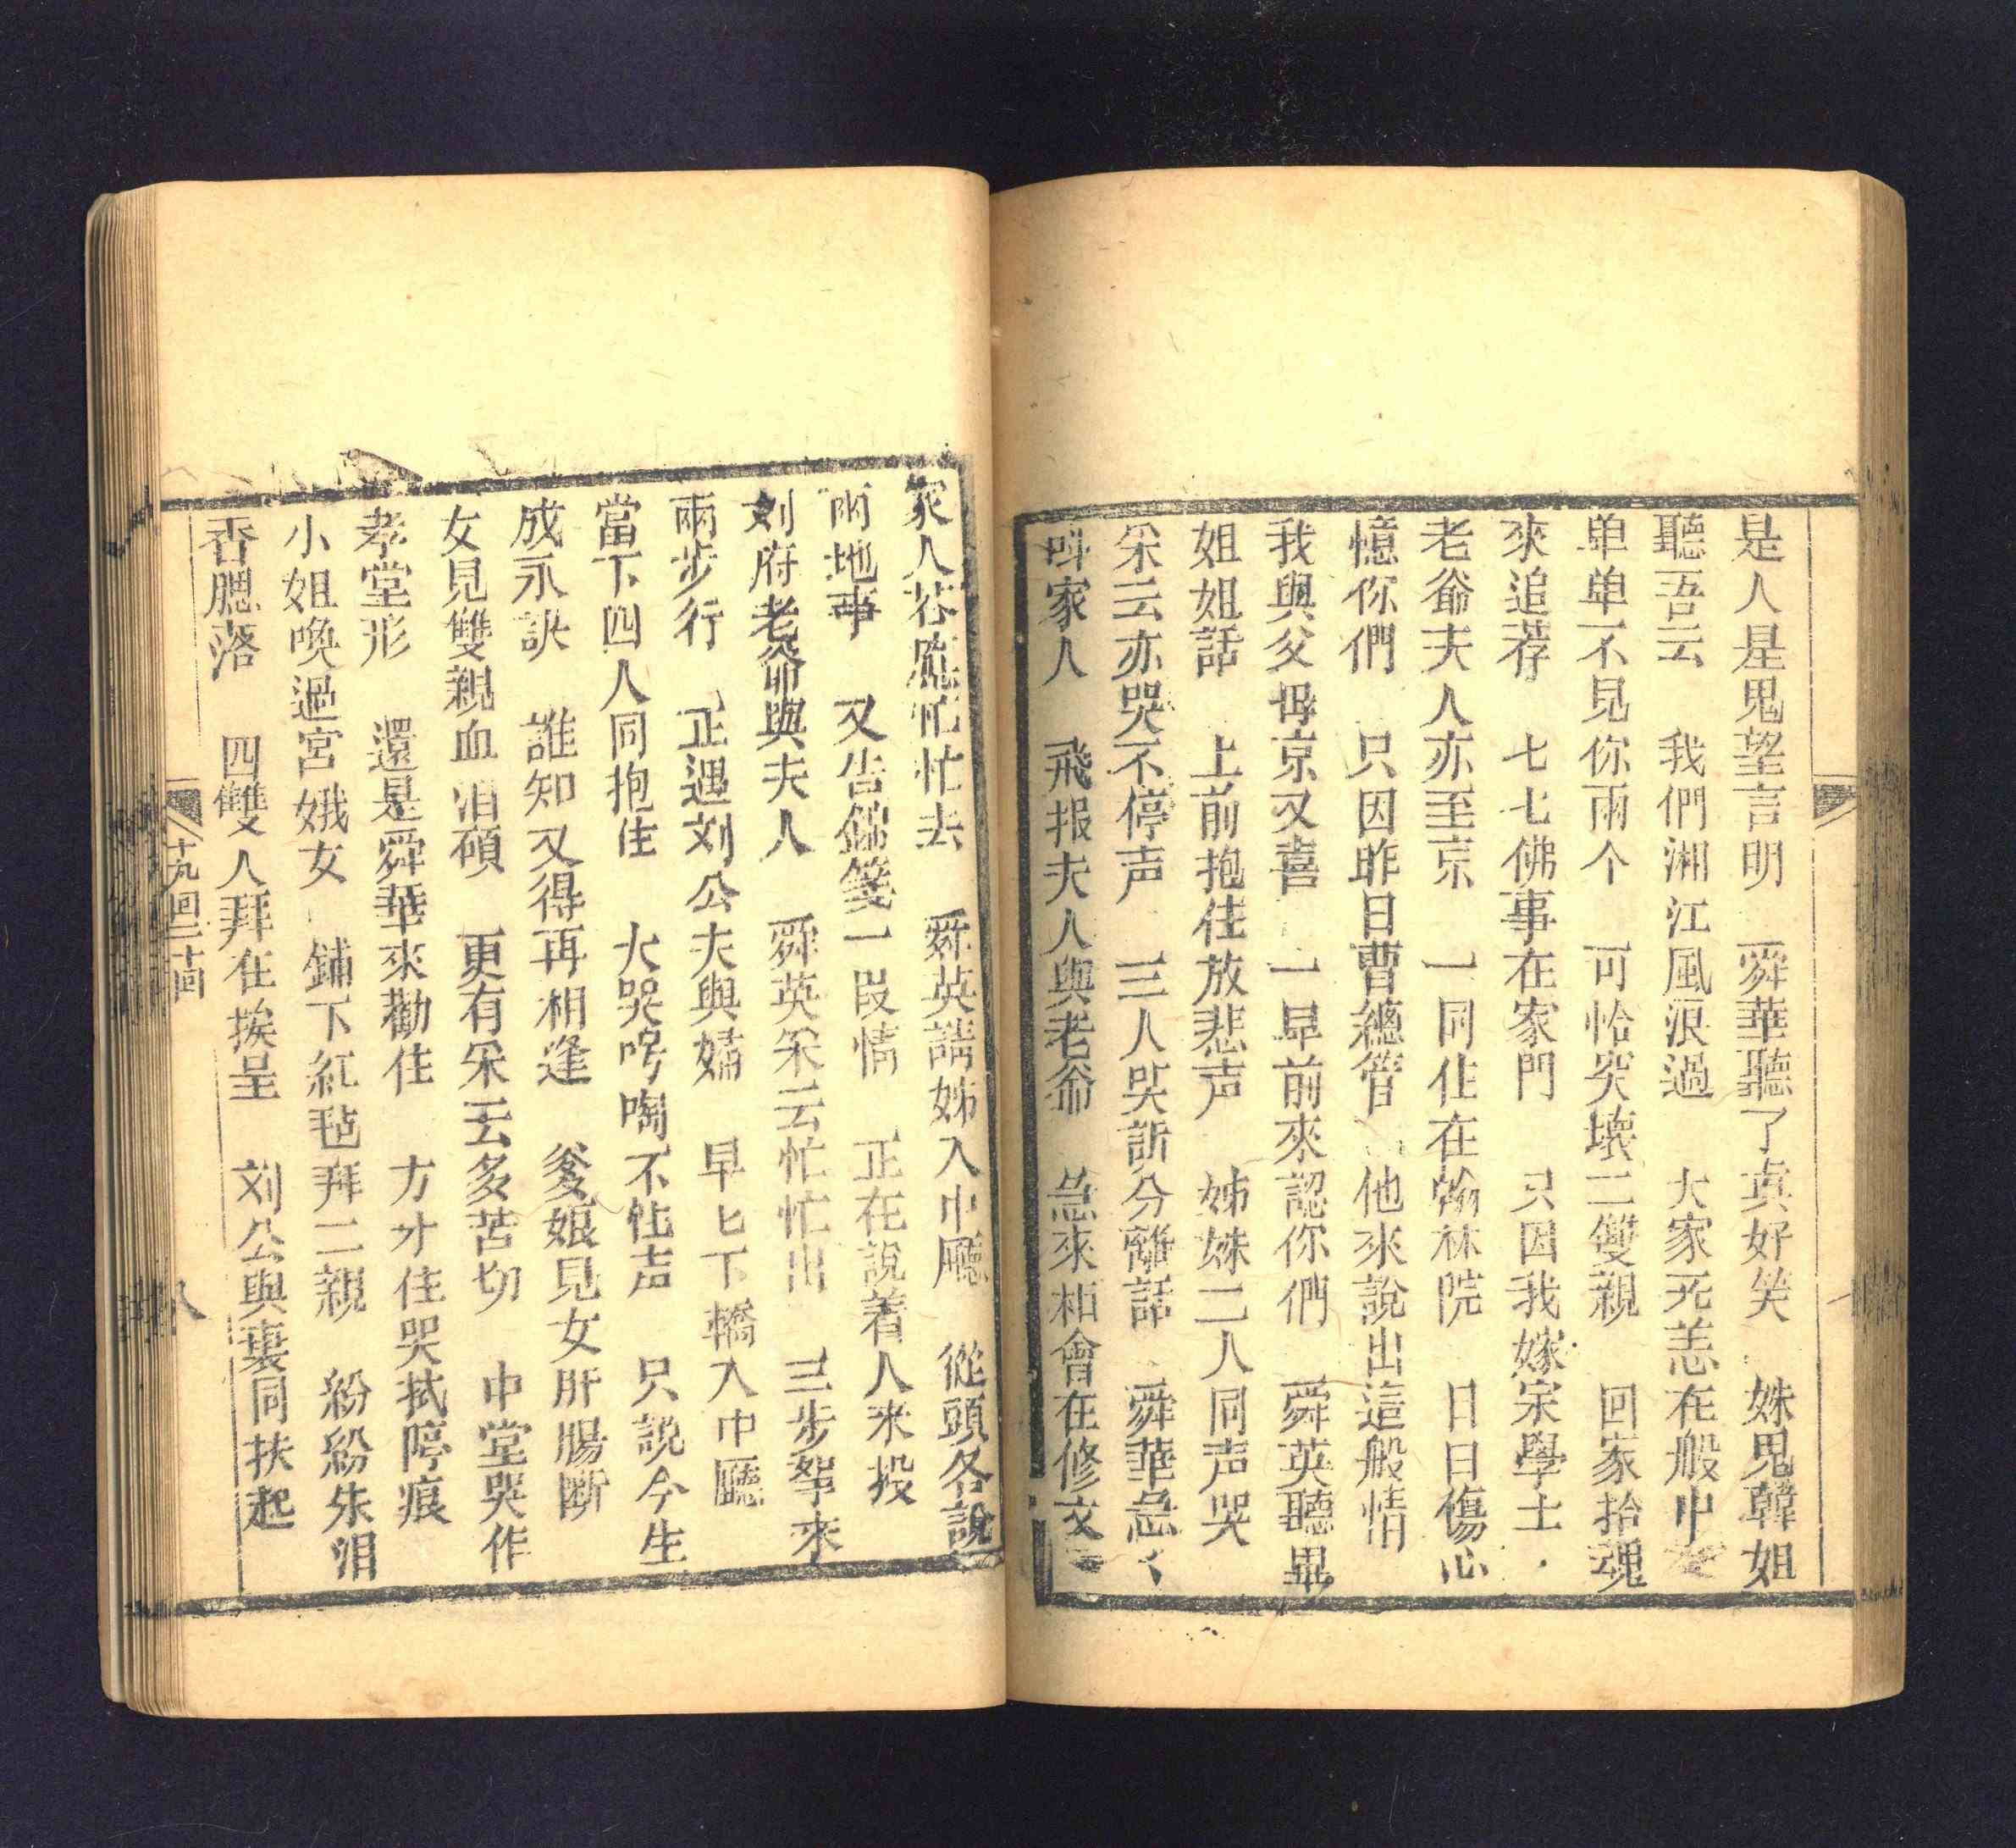 是人是鬼望言明　舜華聽了真好笑　姝鬼韓姐
聽吾云　我們湘江風浪過　大家无恙在般中
单单不見你兩个　可怜哭壞二雙親　回家拾魂
來追荐　七七佛事在家門　只因我嫁宗學士
老爺夫人亦至京　一同住在翰林院　日日傷心
憶你們　只因昨日曹總管　他來說出這般情
我與父母京又喜　一早前來認你們　舜英聽畢
姐姐話　上前抱住放悲声　姊妹二人同声哭
采云亦哭不停声　三人哭訴分離話　舜華急〻
呌家人　飛报夫人與老爺　急來相會在修文
家人荅應忙忙去　舜英請姊入中廳　從頭各說
兩地事　又告錦箋一段情　正在說着人來投
刘府老爺與夫人　舜英采云忙忙出　三步拏來
兩步行　正遇刘公夫與嬌　早匕下轎入中廳
當下四人同抱住　大哭号啕不住声　只說今生
成永訣　誰知又得再相逢　爹娘見女肝腸断
女見雙親血泪碩　更有采云多苦切　中堂哭作
孝堂形　還是舜華來勸住　方才住哭拭啼痕
小姐喚過宮娥女　鋪下紅毡拜二親　紛紛朱泪
香腮落　四雙人拜在挨呈　刘公與裏同扶起
十九囬二十囬
八